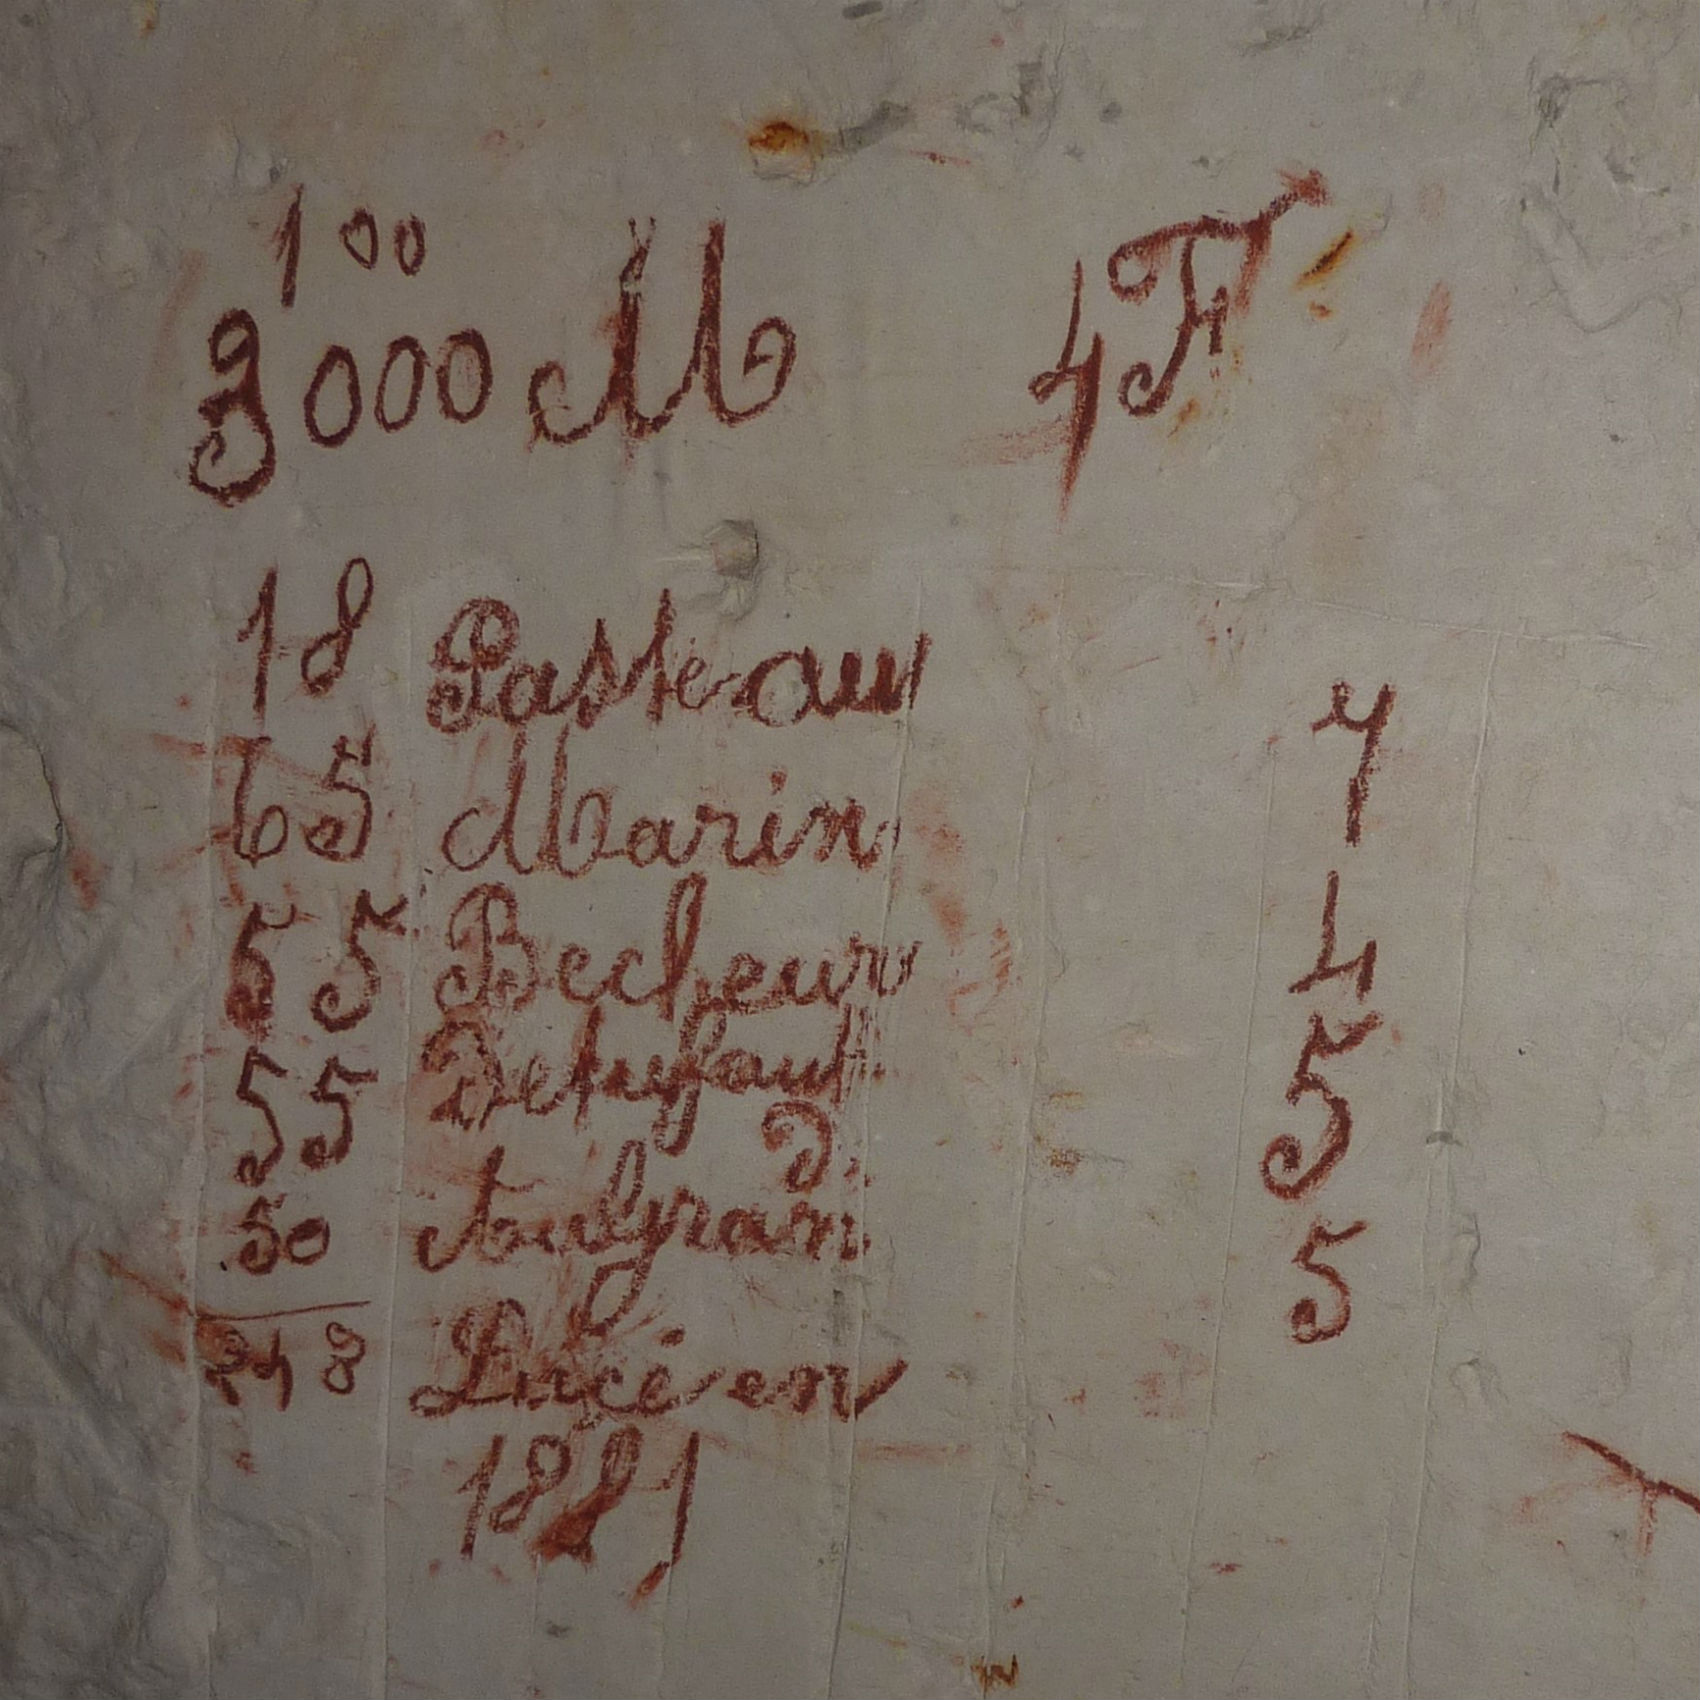 100
3000 M 4F
18 Pasteau
65 Marin 4
55 Becheur 4
55 5
D.
50 5
248 Lucien
1881